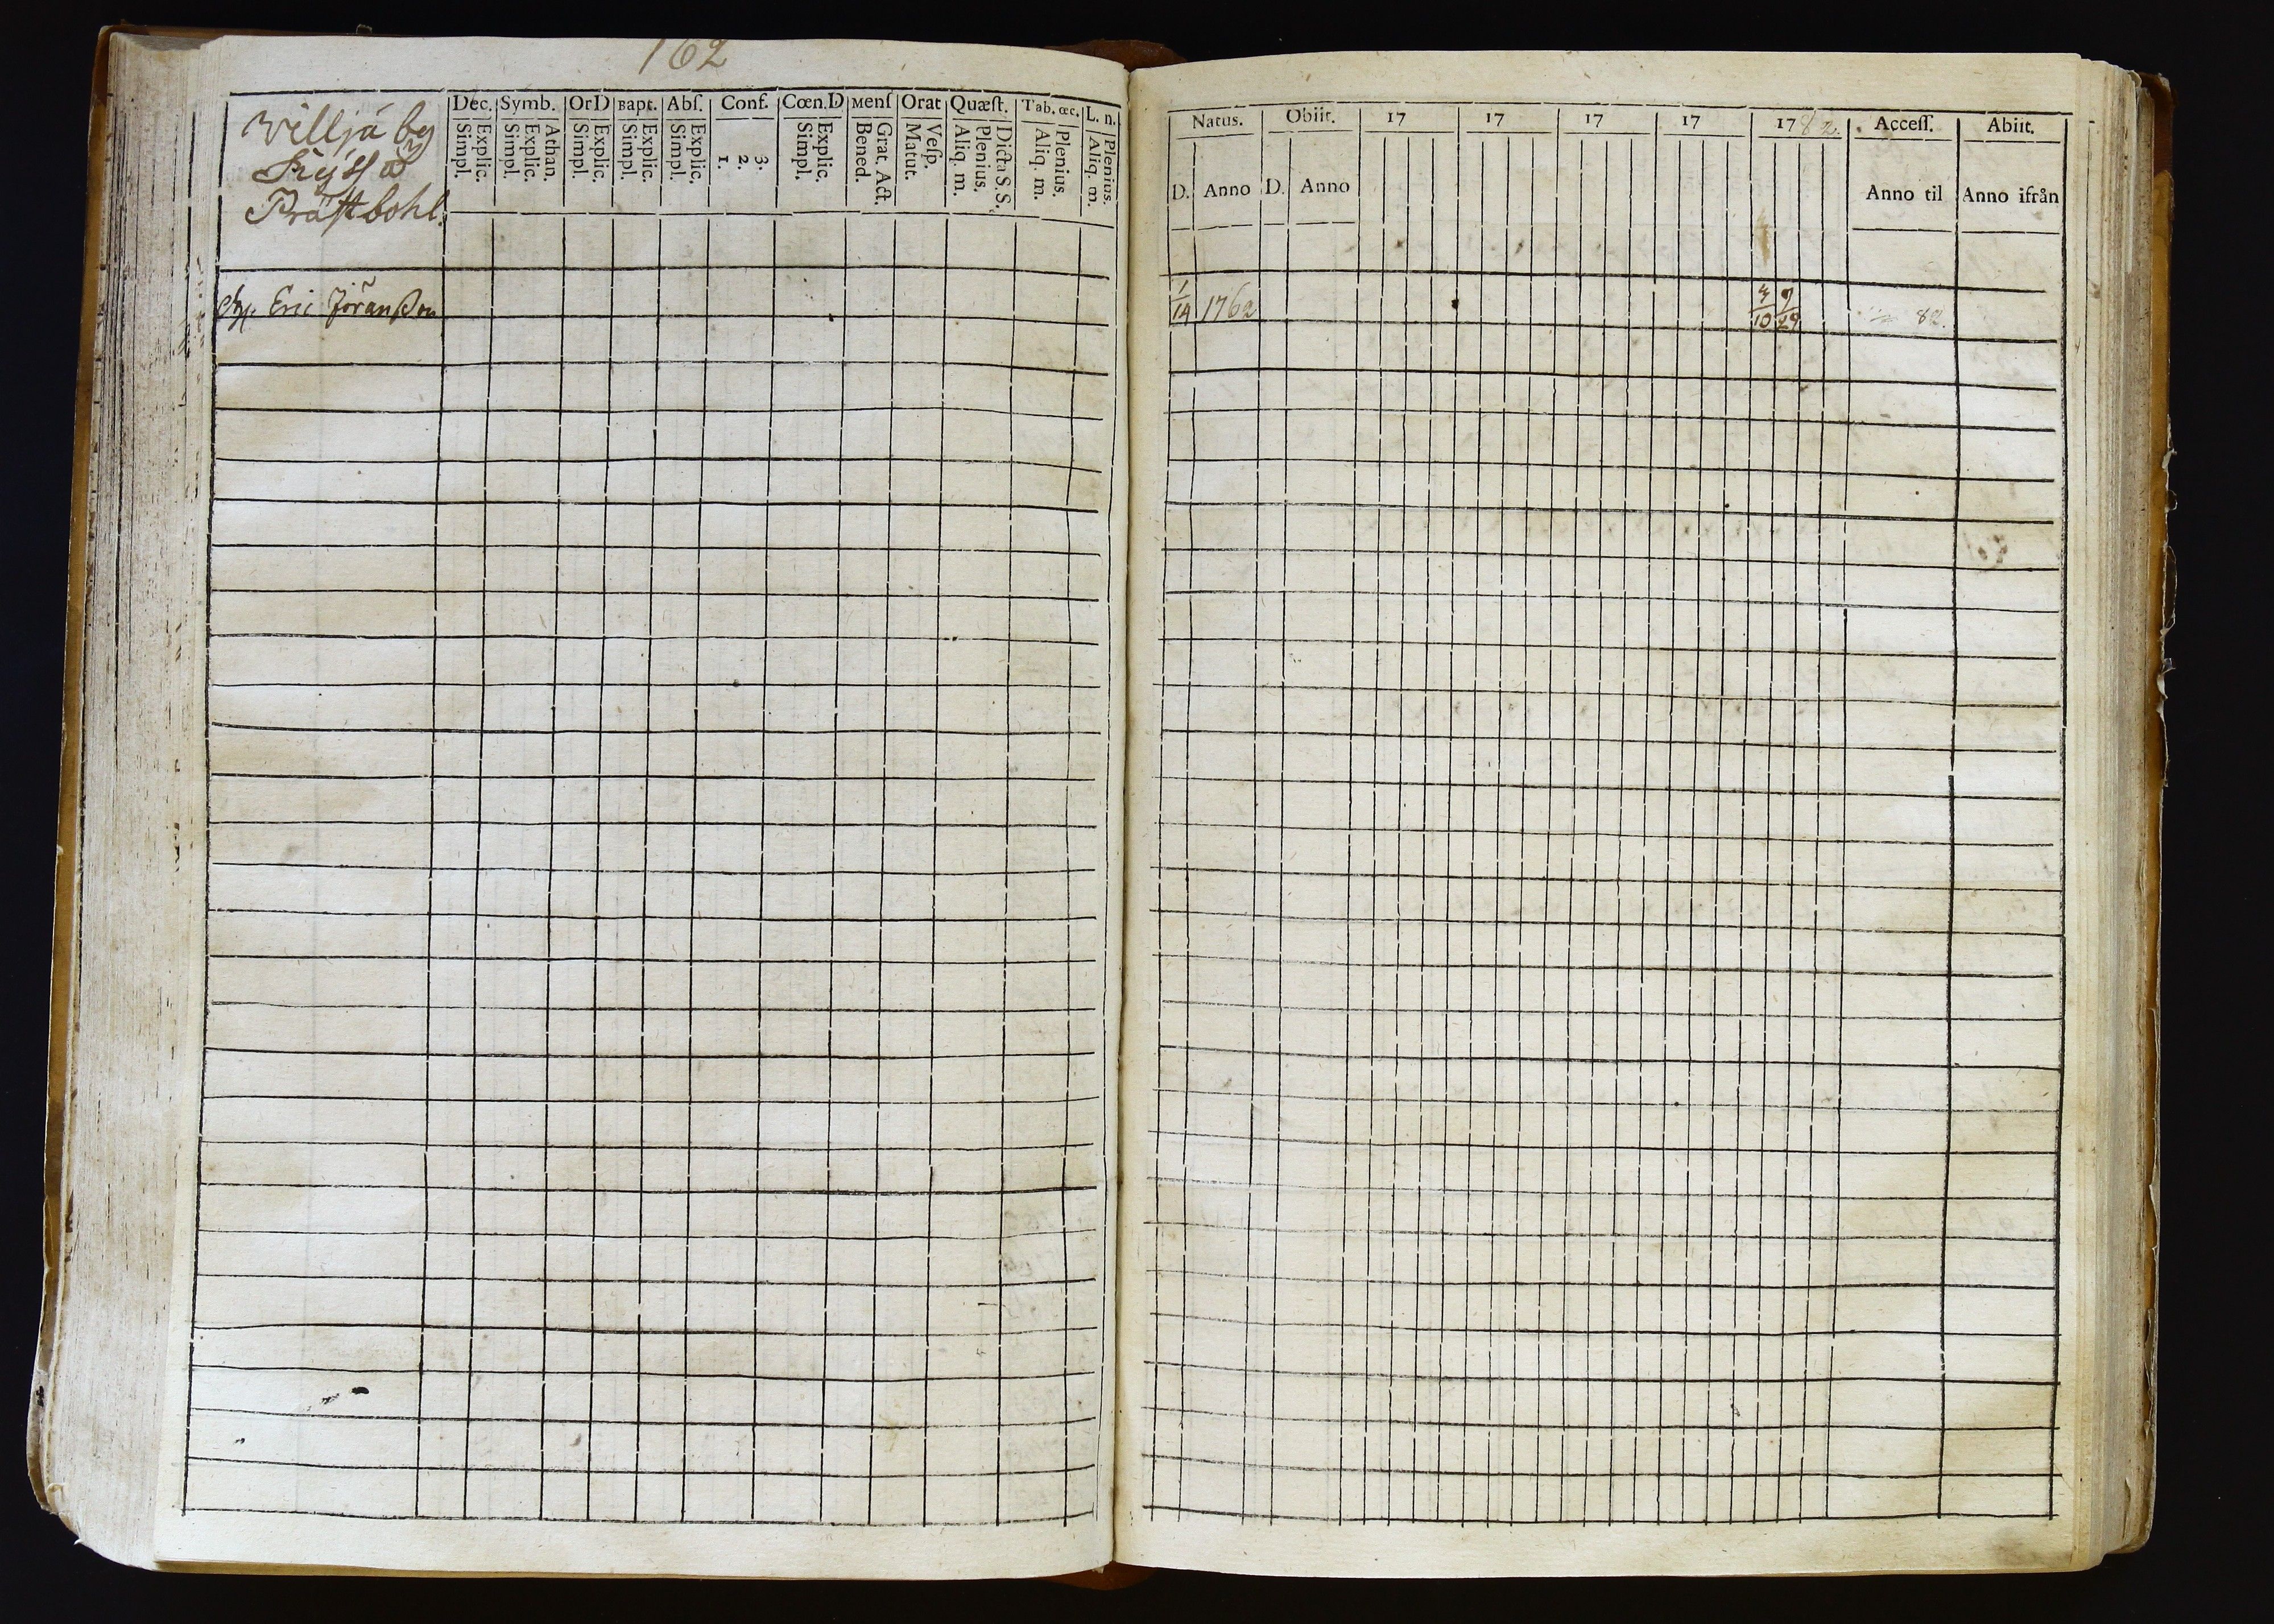 162
Willjä by
Prästbohl.
Dec. Symb. OrD Bapt. Abſ. Conf. Cœn.D Menſ Orat Quæſt. Tab. œc. L. n.
Explic. Simpl. Athan. Explic. Simpl. Explic. Simpl. Explic. Simpl. Explic. Simpl. 3. 2. 1. Explic. Simpl. Grat. Act. Bened. Veſp. Matut. Dicta S.S. Plenius. Aliq. m. Plenius. Aliq. m. Plenius. Aliq. m.
Eric Jöranſson
Natus. Obiit. 17 17 17 17 1782 Acceſſ. Abiit.
D. Anno D. Anno Anno til Anno ifrån
1/14 1762 10 29 82.